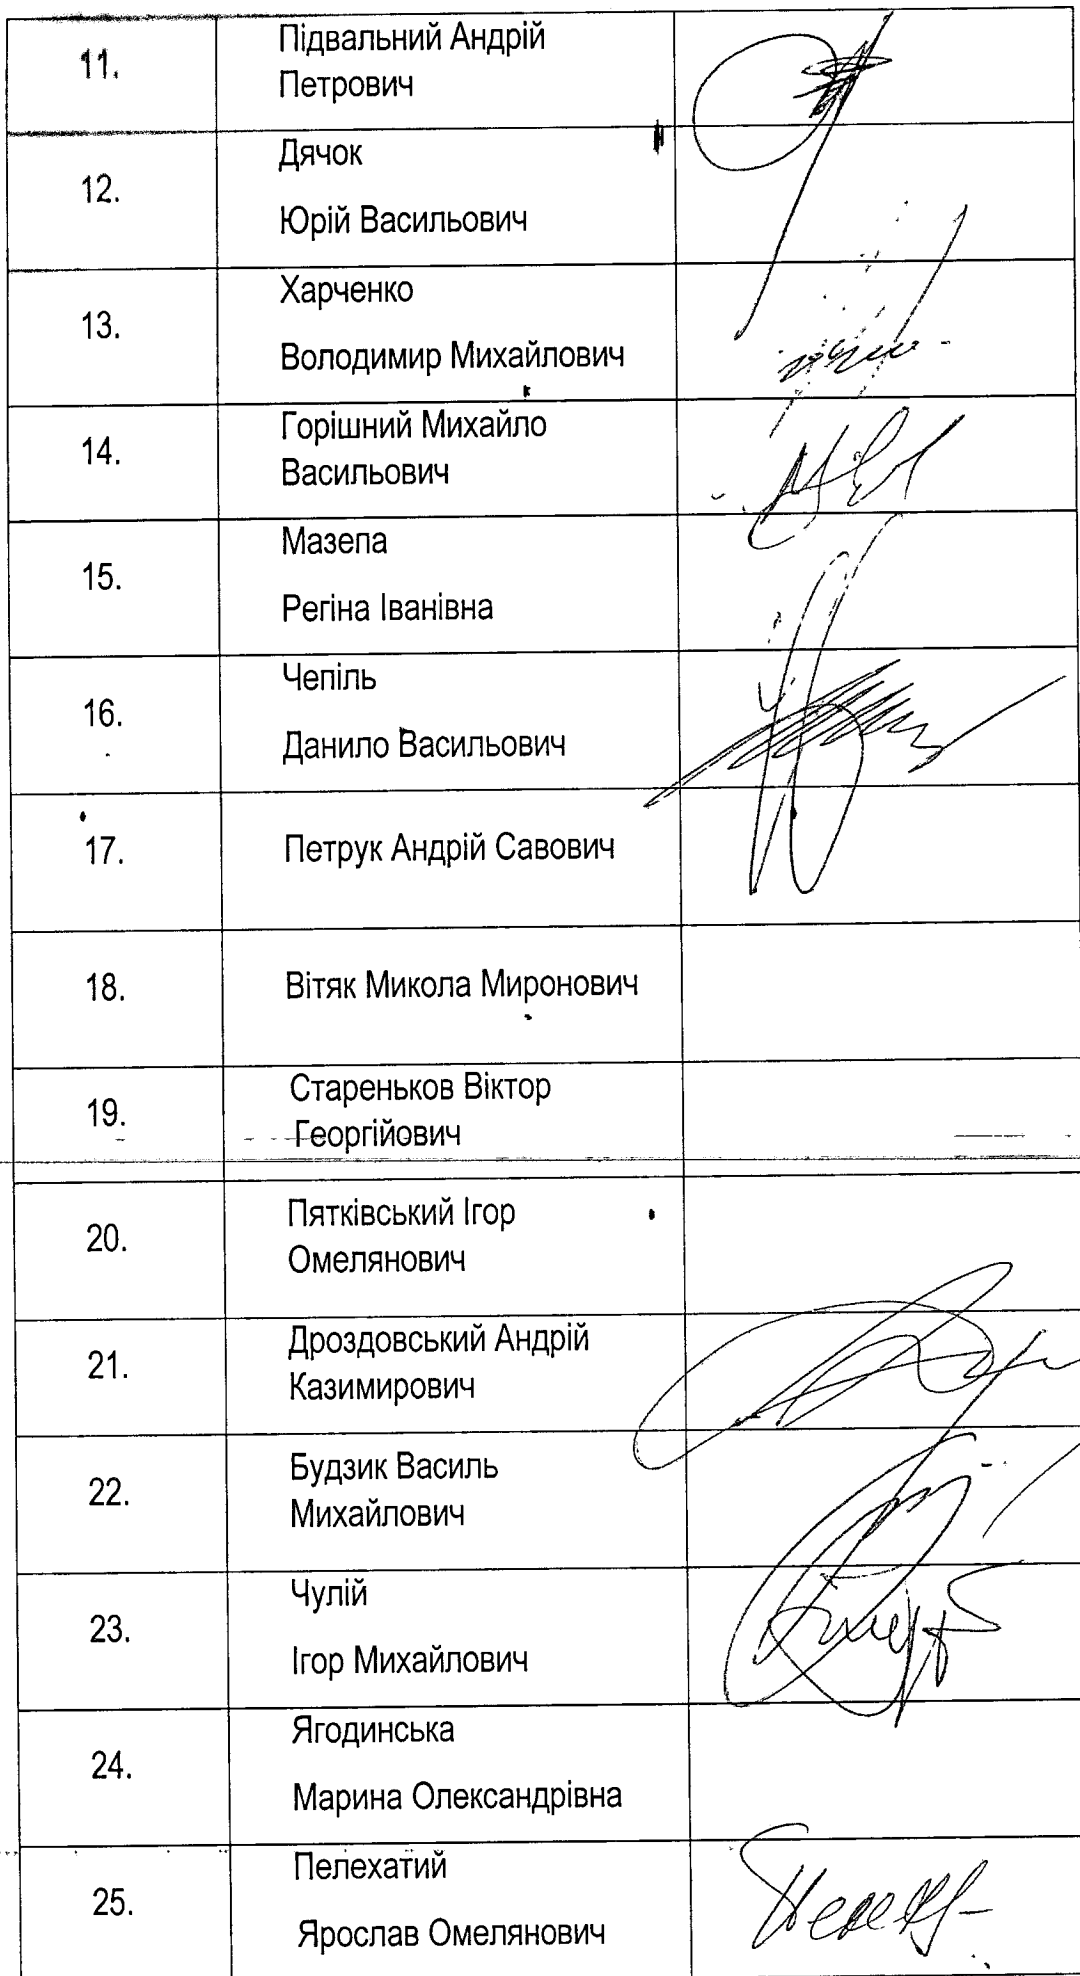 11.
Підвальний Андрій
Петрович
12.
Дячок
Юрій Васильович
13.
Харченко
Володимир Михайлович
14.
Горішний Михайло
Васильович
15.
Мазепа
Регіна Іванівна
16.
Чепіль
Данило Васильович
17.
Петрук Андрій Савович
18.
Вітяк Микола Миронович
19.
Стареньков Віктор
Георгійович
20.
Пятківський Ігор
Омелянович
21.
Дроздовський Андрій
Казимирович
22.
Будзик Василь
Михайлович
23.
Чулій
Ігор Михайлович
24.
Ягодинська
Марина Олександрівна
25.
Пелехатий
Ярослав Омелянович